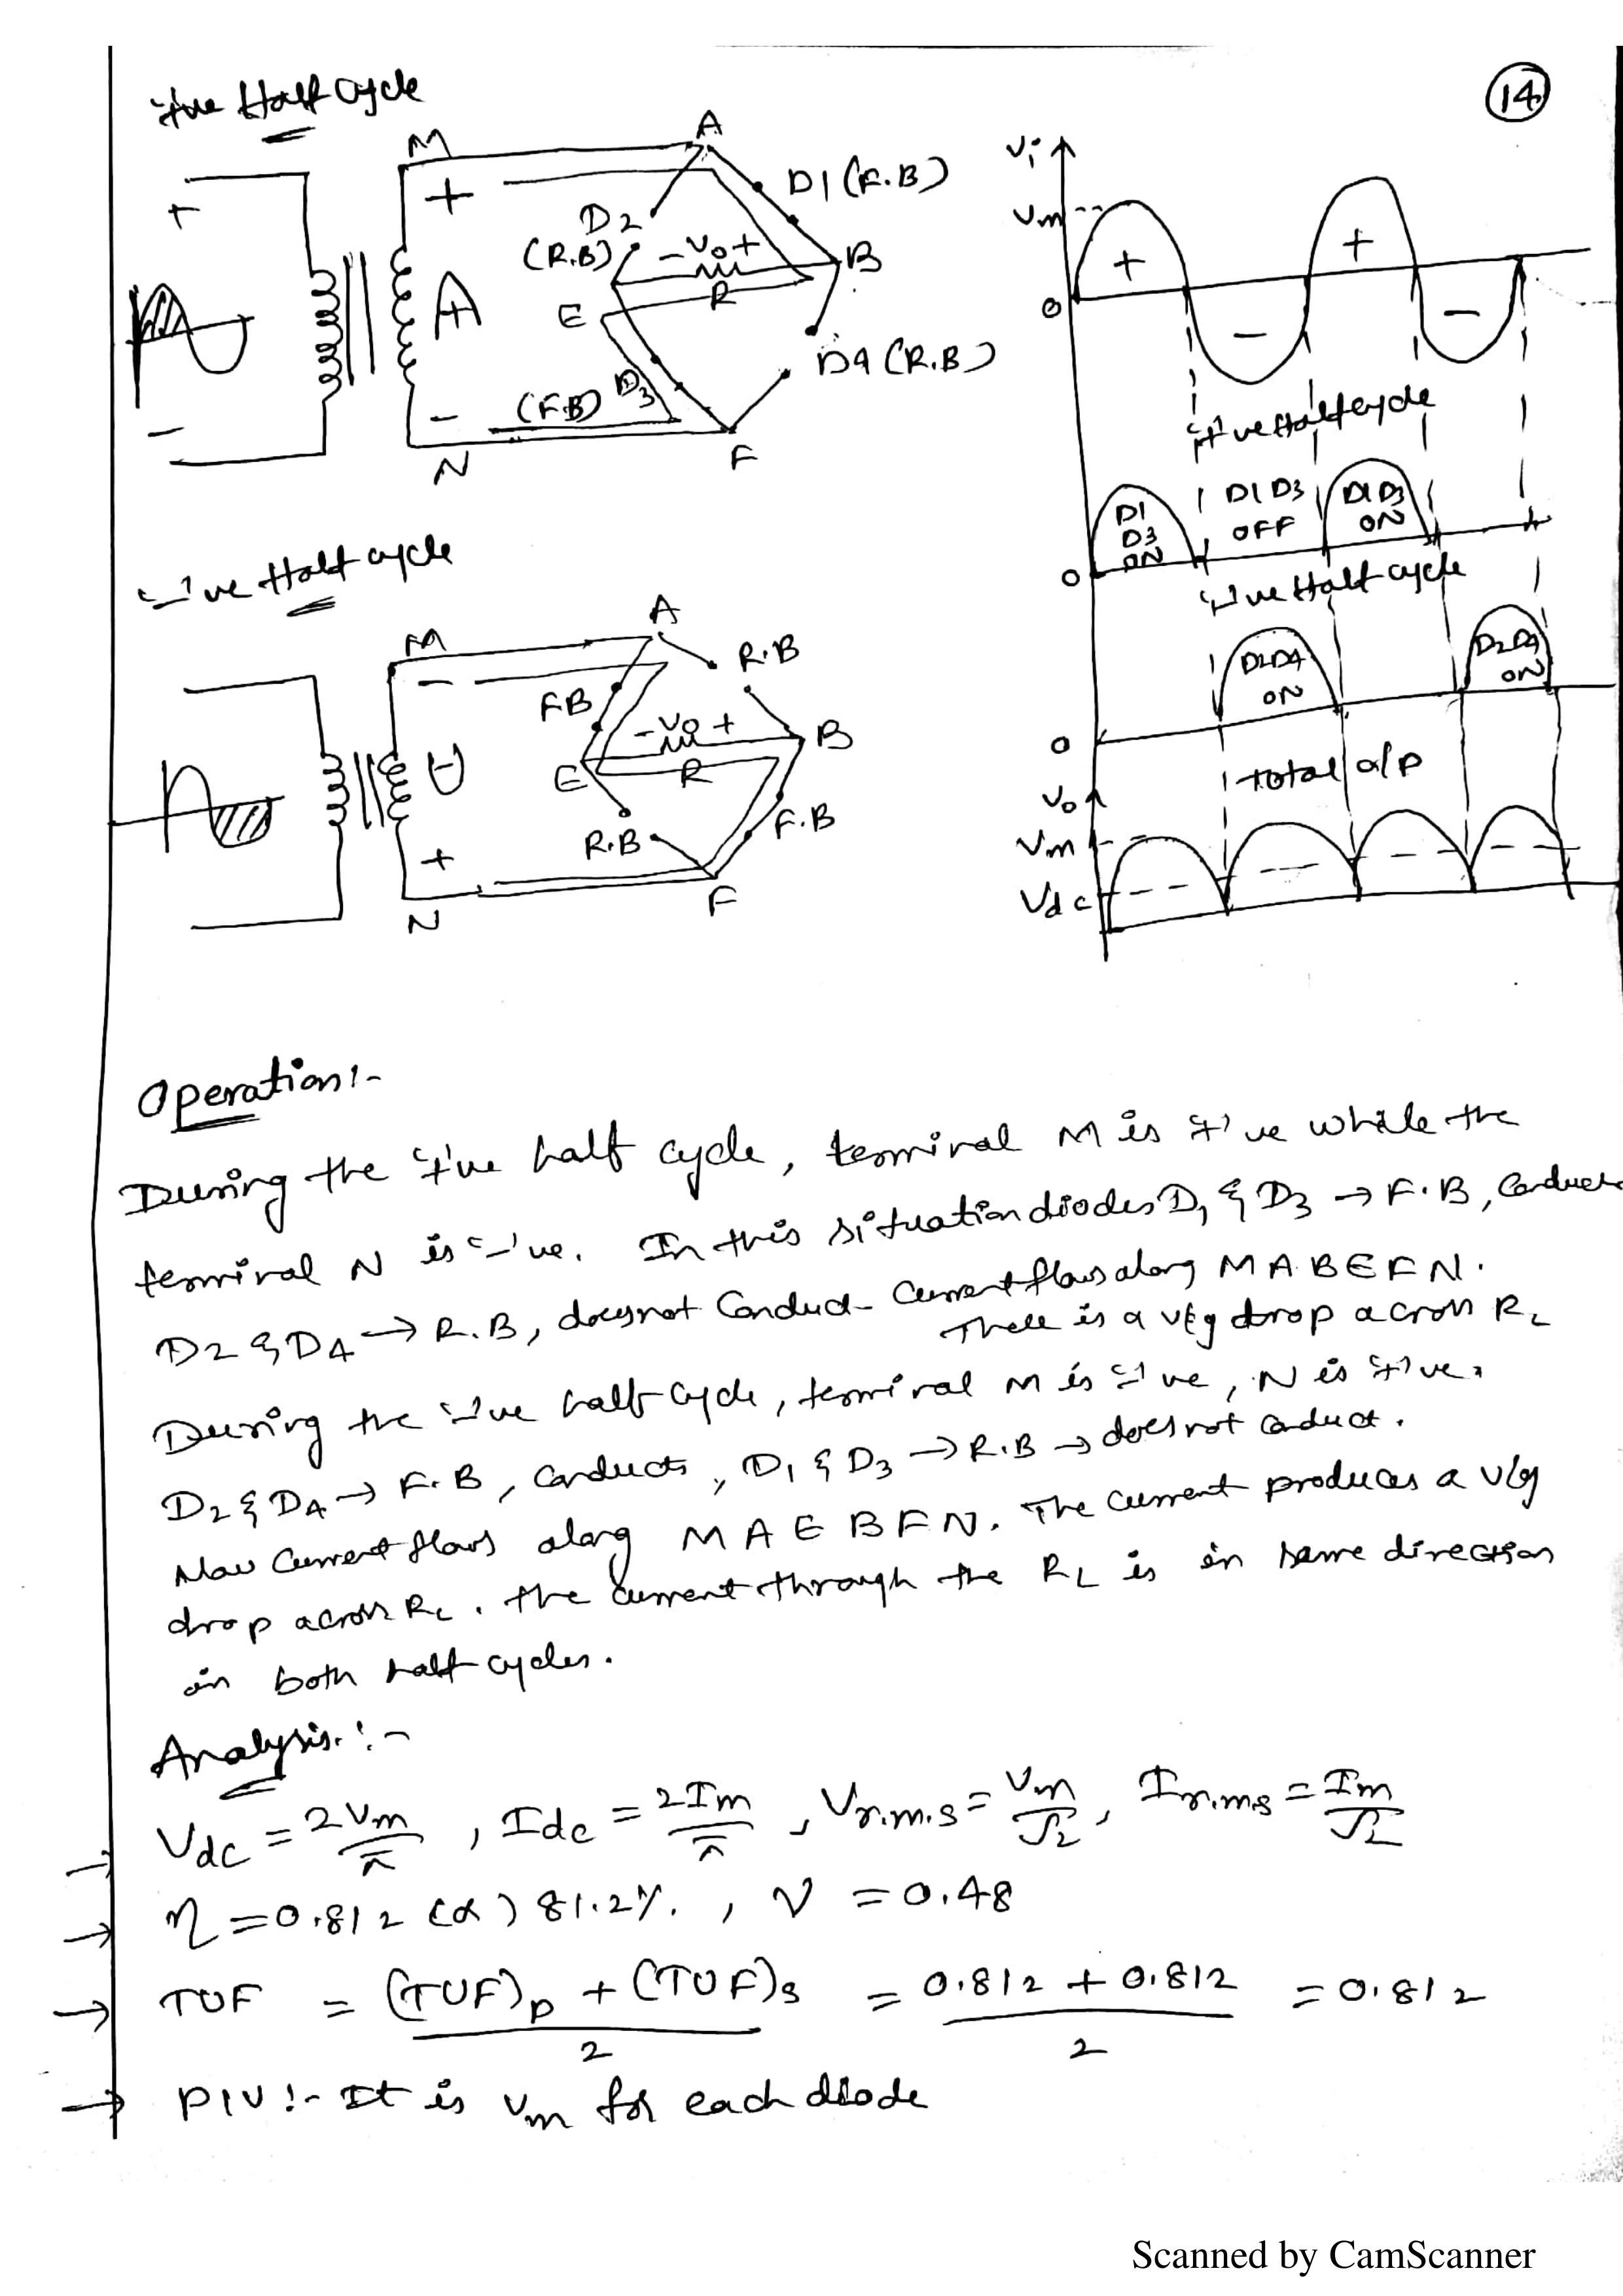 14
'+'ve Half Cycle
M
A
D1 (F.B)
+
+
D2
(R.B)
- Vo +
B
R
E
D4 (R.B)
(F.B) D3
-
-
N
F
Vi
Vm
+
+
0
-
-
'+'ve Half cycle
D1
D3
ON
D1 D3
OFF
D1 D3
ON
0
'-'ve Half cycle
D2D4
ON
D2D4
ON
0
Total o/p
Vo
Vm
Vdc
'-'ve Half cycle
M
A
R.B
-
F.B
- Vo +
B
E
R
F.B
R.B
+
N
F
Operation:-
During the '+'ve half cycle, terminal M is '+'ve while the
terminal N is '-'ve. In this situation diodes D1 & D3 → F.B, Conducts
D2 & D4 → R.B, does not Conduct. Current flows along MABEFN.
There is a vtg drop across RL
During the '-'ve half cycle, terminal M is '-'ve, N is '+'ve.
D2 & D4 → F.B, Conducts, D1 & D3 → R.B → does not Conduct.
Now Current flows along MAEBFN. The Current produces a vtg
drop across RL. The Current through the RL is in same direction
in both half cycles.
Analysis:-
→ Vdc = 2Vm/π , Idc = 2Im/π , Vr.m.s = Vm/√2 , Ir.m.s = Im/√2
→ η = 0.812 (or) 81.2%. , γ = 0.48
→ TUF = (TUF)p + (TUF)s / 2 = 0.812 + 0.812 / 2 = 0.812
→ PIV:- It is Vm for each diode
Scanned by CamScanner